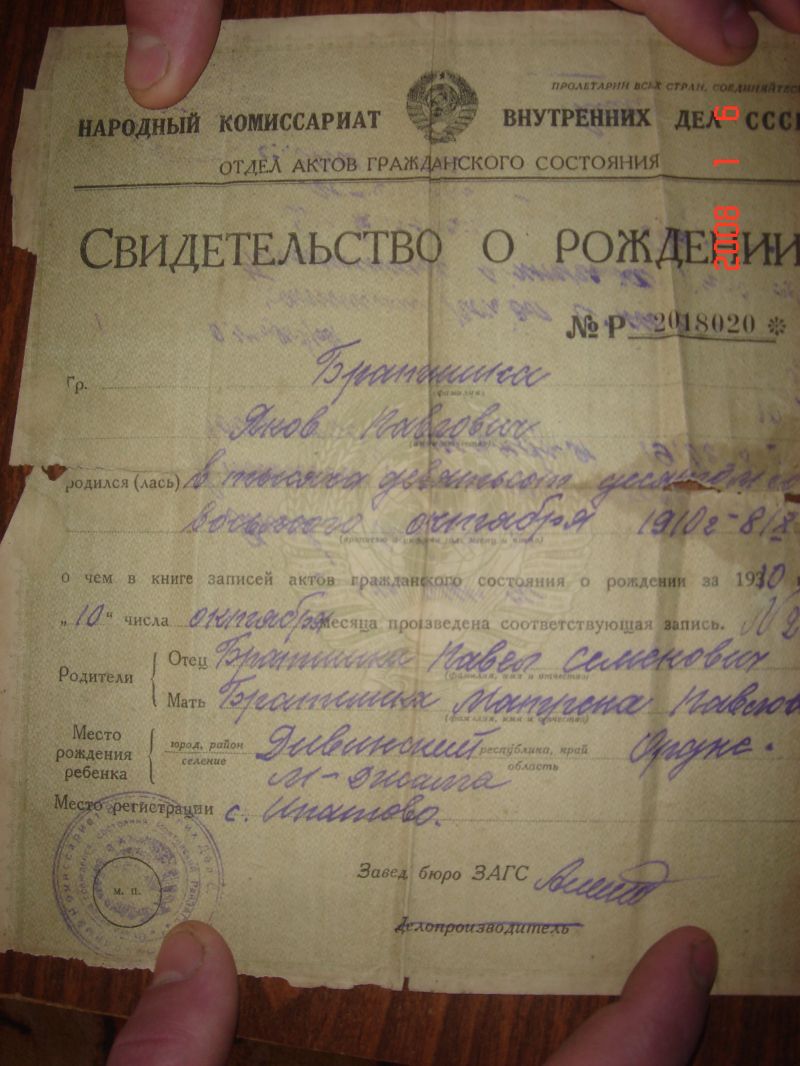 ПРОЛЕТАРИИ ВСЕХ СТРАН, СОЕДИНЯЙТЕСЬ
НАРОДНЫЙ КОМИССАРИАТ ВНУТРЕННИХ ДЕЛ СССР
ОТДЕЛ АКТОВ ГРАЖДАНСКОГО СОСТОЯНИЯ
СВИДЕТЕЛЬСТВО О РОЖДЕНИИ
№ Р 2018020 *
Гр. Братишка
(фамилия)
Яков Павлович
родился (лась) в тысяча девятьсот десятом
восьмого октября 1910 г - 8/X
(прописью и цифрами год, месяц и число)
о чем в книге записей актов гражданского состояния о рождении за 1910 г
„10“ числа октября месяца произведена соответствующая запись. № 2
Родители
Отец Братишка Павел Семенович
(фамилия, имя и отчество)
Мать Братишка Матрена Павлов
(фамилия, имя и отчество)
Место рождения ребенка
город, район селение Дивинский республика, край область Ордж.
М-Джалга
Место регистрации с. Ипатово.
Завед. бюро ЗАГС
Делопроизводитель
м. п.
2008 1 6